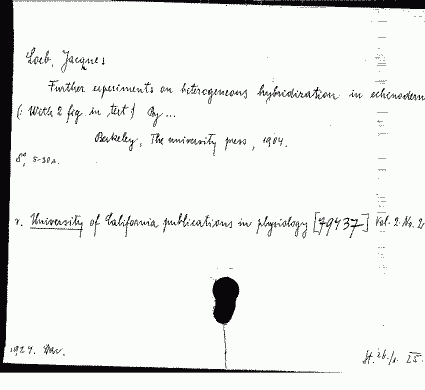 Loeb, Jacques
Further experiments on heterogeneous hybridization in echenoderm
(: With 2 fig. in text) By ...
Berkeley, The university press, 1904.
8°, 5-30 s.
v. University of California publications in physiology [79437] Vol. 2. No. 2
1924.